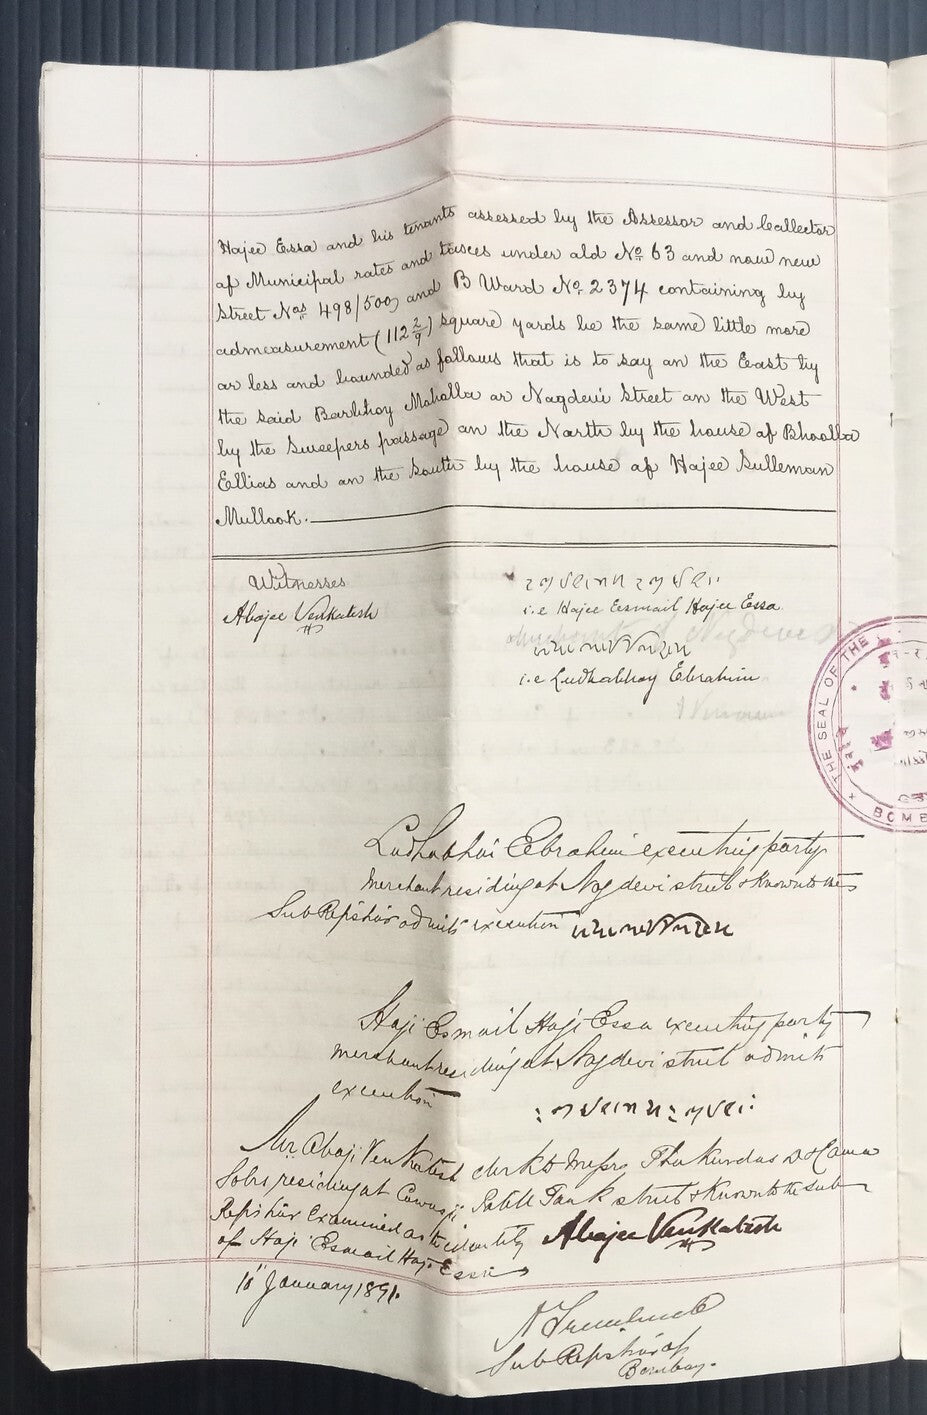 Hajee Essa and his tenants assessed by the Assessor and Collector
of Municipal rates and taxes under old No. 63 and now new
Street Nos 498/500 and B Ward No. 2374 containing by
admeasurement (112 2/9) square yards be the same little more
or less and bounded as follows that is to say on the East by
the said Barbhoy Mohalla or Nagdevi Street on the West
by the Sweepers passage on the North by the house of Bhoolba
Ellias and on the South by the house of Hajee Sulleman
Mullook.
Witnesses
Abajee Venkatesh
i.e Hajee Esmail Hajee Essa
i.e Ludhabhoy Ebrahim
THE SEAL OF THE
BOMB
Ludhabhai Ebrahim executing party
merchant residing at Nagdevi street & known to the
Sub Registrar admits execution
Haji Esmail Haji Essa executing party
merchant residing at Nagdevi street admits
execution
Mr. Abaji Venkatesh clerk to Messrs Thakurdas & Cama
Solrs residing at Cawasji Patell Tank street & known to the Sub
Registrar Examined as to the identity Abajee Venkatesh
of Haji Esmail Haji Essa
10 January 1891.
Sub Registrar of
Bombay.